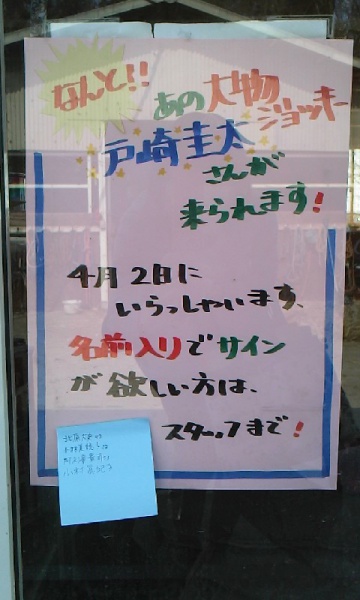 なんと!!
あの大物
ジョッキー
戸崎圭太
さんが
来られます!
4月2日に
いらっしゃいます、
名前入りでサイン
が欲しい方は、
スタッフまで!